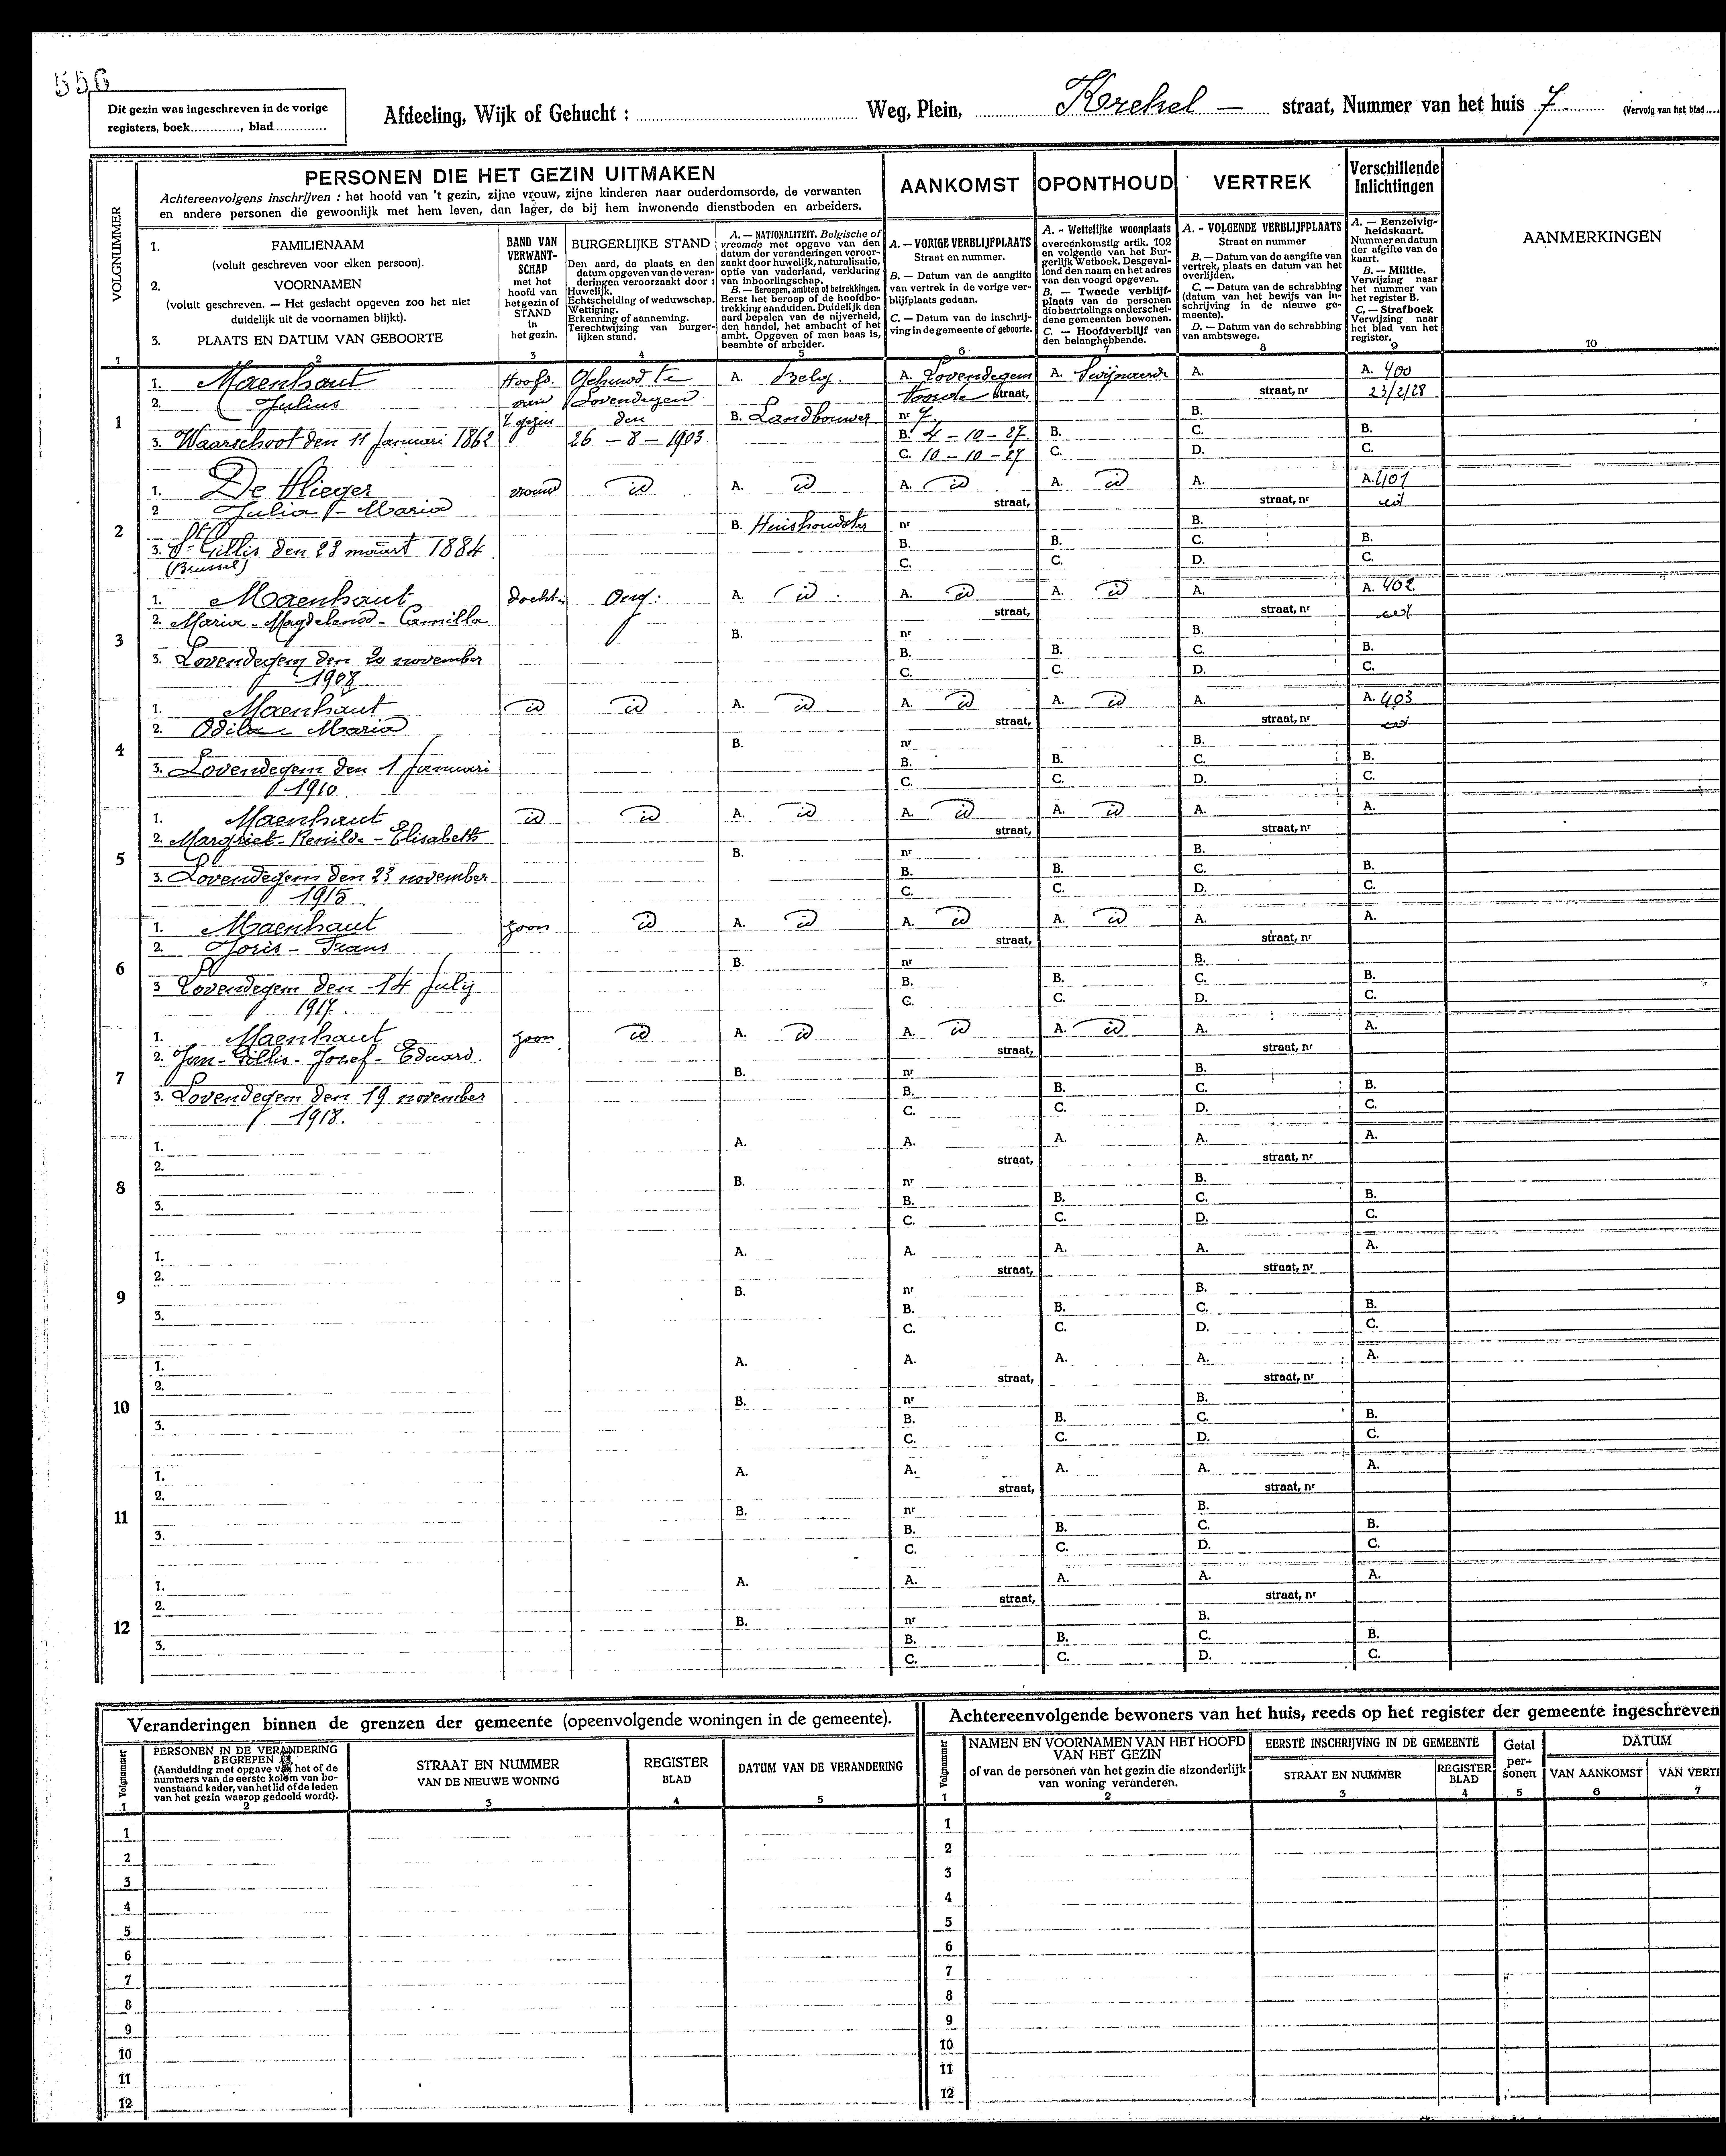 556
Dit gezin was ingeschreven in de vorige
registers, boek............, blad.............
Afdeeling, Wijk of Gehucht :
Weg, Plein, Kerckel — straat, Nummer van het huis 7.
(Vervolg van het blad....
VOLGNUMMER
1
PERSONEN DIE HET GEZIN UITMAKEN
Achtereenvolgens inschrijven : het hoofd van 't gezin, zijne vrouw, zijne kinderen naar ouderdomsorde, de verwanten
en andere personen die gewoonlijk met hem leven, dan lager, de bij hem inwonende dienstboden en arbeiders.
1. FAMILIENAAM
(voluit geschreven voor elken persoon).
2. VOORNAMEN
(voluit geschreven. — Het geslacht opgeven zoo het niet
duidelijk uit de voornamen blijkt).
3. PLAATS EN DATUM VAN GEBOORTE
2
BAND VAN
VERWANT-
SCHAP
met het
hoofd van
het gezin of
STAND
in
het gezin.
3
BURGERLIJKE STAND
Den aard, de plaats en den
datum opgeven van de veran-
deringen veroorzaakt door :
Huwelijk.
Echtscheiding of weduwschap.
Wettiging.
Erkenning of aanneming.
Terechtwijzing van burger-
lijken stand.
4
A. — NATIONALITEIT. Belgische of
vreemde met opgave van den
datum der veranderingen veroor-
zaakt door huwelijk, naturalisatie,
optie van vaderland, verklaring
van inboorlingschap.
B. — Beroepen, ambten of betrekkingen.
Eerst het beroep of de hoofdbe-
trekking aanduiden. Duidelijk den
aard bepalen van de nijverheid,
den handel, het ambacht of het
ambt. Opgeven of men baas is,
beambte of arbeider.
5
AANKOMST
A. — VORIGE VERBLIJFPLAATS
Straat en nummer.
B. — Datum van de aangifte
van vertrek in de vorige ver-
blijfplaats gedaan.
C. — Datum van de inschrij-
ving in de gemeente of geboorte.
6
OPONTHOUD
A. - Wettelijke woonplaats
overeenkomstig artik. 102
en volgende van het Bur-
gerlijk Wetboek. Desgeval-
lend den naam en het adres
van den voogd opgeven.
B. — Tweede verblijf-
plaats van de personen
die beurtelings onderschei-
dene gemeenten bewonen.
C. — Hoofdverblijf van
den belanghebbende.
7
VERTREK
A. - VOLGENDE VERBLIJFPLAATS
Straat en nummer
B. — Datum van de aangifte van
vertrek, plaats en datum van het
overlijden.
C. — Datum van de schrabbing
(datum van het bewijs van in-
schrijving in de nieuwe ge-
meente).
D. — Datum van de schrabbing
van ambtswege.
8
Verschillende
Inlichtingen
A. — Eenzelvig-
heidskaart.
Nummer en datum
der afgifte van de
kaart.
B. — Militie.
Verwijzing naar
het nummer van
het register B.
C. — Strafboek
Verwijzing naar
het blad van het
register.
9
AANMERKINGEN
10
1
1. Maenhaut
2. Julius
3. Waarschoot den 11 Januari 1862
Hoofd
van
't gezin
Gehuwd te
Lovendegem
den
26 - 8 - 1903.
A. Belg.
B. Landbouwer
A. Lovendegem
Voorde straat,
nr 7.
B. 4 - 10 - 27.
C. 10 - 10 - 27
A. Swijnaerde
B.
C.
A.
straat, nr
B.
C.
D.
A. 400
23/2/28
B.
C.
2
1. De Vlieger
2 Julia - Maria
3. St Gillis den 23 maart 1884.
(Brussel)
vrouw
id
A. id
B. Huishoudster
A. id
straat,
nr
B.
C.
A. id
B.
C.
A.
straat, nr
B.
C.
D.
A. 401
id
B.
C.
3
1. Maenhaut
2. Maria - Magdelena - Camilla
3. Lovendegem den 20 november
1908
docht:
Ong:
A. id
B.
A. id
straat,
nr
B.
C.
A. id
B.
C.
A.
straat, nr
B.
C.
D.
A. 402.
id
B.
C.
4
1. Maenhaut
2. Odila - Maria
3. Lovendegem den 1 Januari
1910
id
id
A. id
B.
A. id
straat,
nr
B.
C.
A. id
B.
C.
A.
straat, nr
B.
C.
D.
A. 403
id
B.
C.
5
1. Maenhaut
2. Margriet - Renilde - Elisabeth
3. Lovendegem den 23 november
1915
id
id
A. id
B.
A. id
straat,
nr
B.
C.
A. id
B.
C.
A.
straat, nr
B.
C.
D.
A.
B.
C.
6
1. Maenhaut
2. Joris - Frans
3 Lovendegem den 14 July
1917.
zoon
id
A. id
B.
A. id
straat,
nr
B.
C.
A. id
B.
C.
A.
straat, nr
B.
C.
D.
A.
B.
C.
7
1. Maenhaut
2. Jan - Gillis - Jozef - Eduard.
3. Lovendegem den 19 november
1918.
zoon
id
A. id
B.
A. id
straat,
nr
B.
C.
A. id
B.
C.
A.
straat, nr
B.
C.
D.
A.
B.
C.
8
1.
2.
3.
A.
B.
A.
straat,
nr
B.
C.
A.
B.
C.
A.
straat, nr
B.
C.
D.
A.
B.
C.
9
1.
2.
3.
A.
B.
A.
straat,
nr
B.
C.
A.
B.
C.
A.
straat, nr
B.
C.
D.
A.
B.
C.
10
1.
2.
3.
A.
B.
A.
straat,
nr
B.
C.
A.
B.
C.
A.
straat, nr
B.
C.
D.
A.
B.
C.
11
1.
2.
3.
A.
B.
A.
straat,
nr
B.
C.
A.
B.
C.
A.
straat, nr
B.
C.
D.
A.
B.
C.
12
1.
2.
3.
A.
B.
A.
straat,
nr
B.
C.
A.
B.
C.
A.
straat, nr
B.
C.
D.
A.
B.
C.
Veranderingen binnen de grenzen der gemeente (opeenvolgende woningen in de gemeente).
Volgnummer
1
PERSONEN IN DE VERANDERING
BEGREPEN
(Aanduiding met opgave van het of de
nummers van de eerste kolom van bo-
venstaand kader, van het lid of de leden
van het gezin waarop gedoeld wordt).
2
STRAAT EN NUMMER
VAN DE NIEUWE WONING
3
REGISTER
BLAD
4
DATUM VAN DE VERANDERING
5
1
2
3
4
5
6
7
8
9
10
11
12
Achtereenvolgende bewoners van het huis, reeds op het register der gemeente ingeschreven
Volgnummer
1
NAMEN EN VOORNAMEN VAN HET HOOFD
VAN HET GEZIN
of van de personen van het gezin die afzonderlijk
van woning veranderen.
2
EERSTE INSCHRIJVING IN DE GEMEENTE
STRAAT EN NUMMER
3
REGISTER
BLAD
4
Getal
per-
sonen
5
DATUM
VAN AANKOMST
6
VAN VERT
7
1
2
3
4
5
6
7
8
9
10
11
12